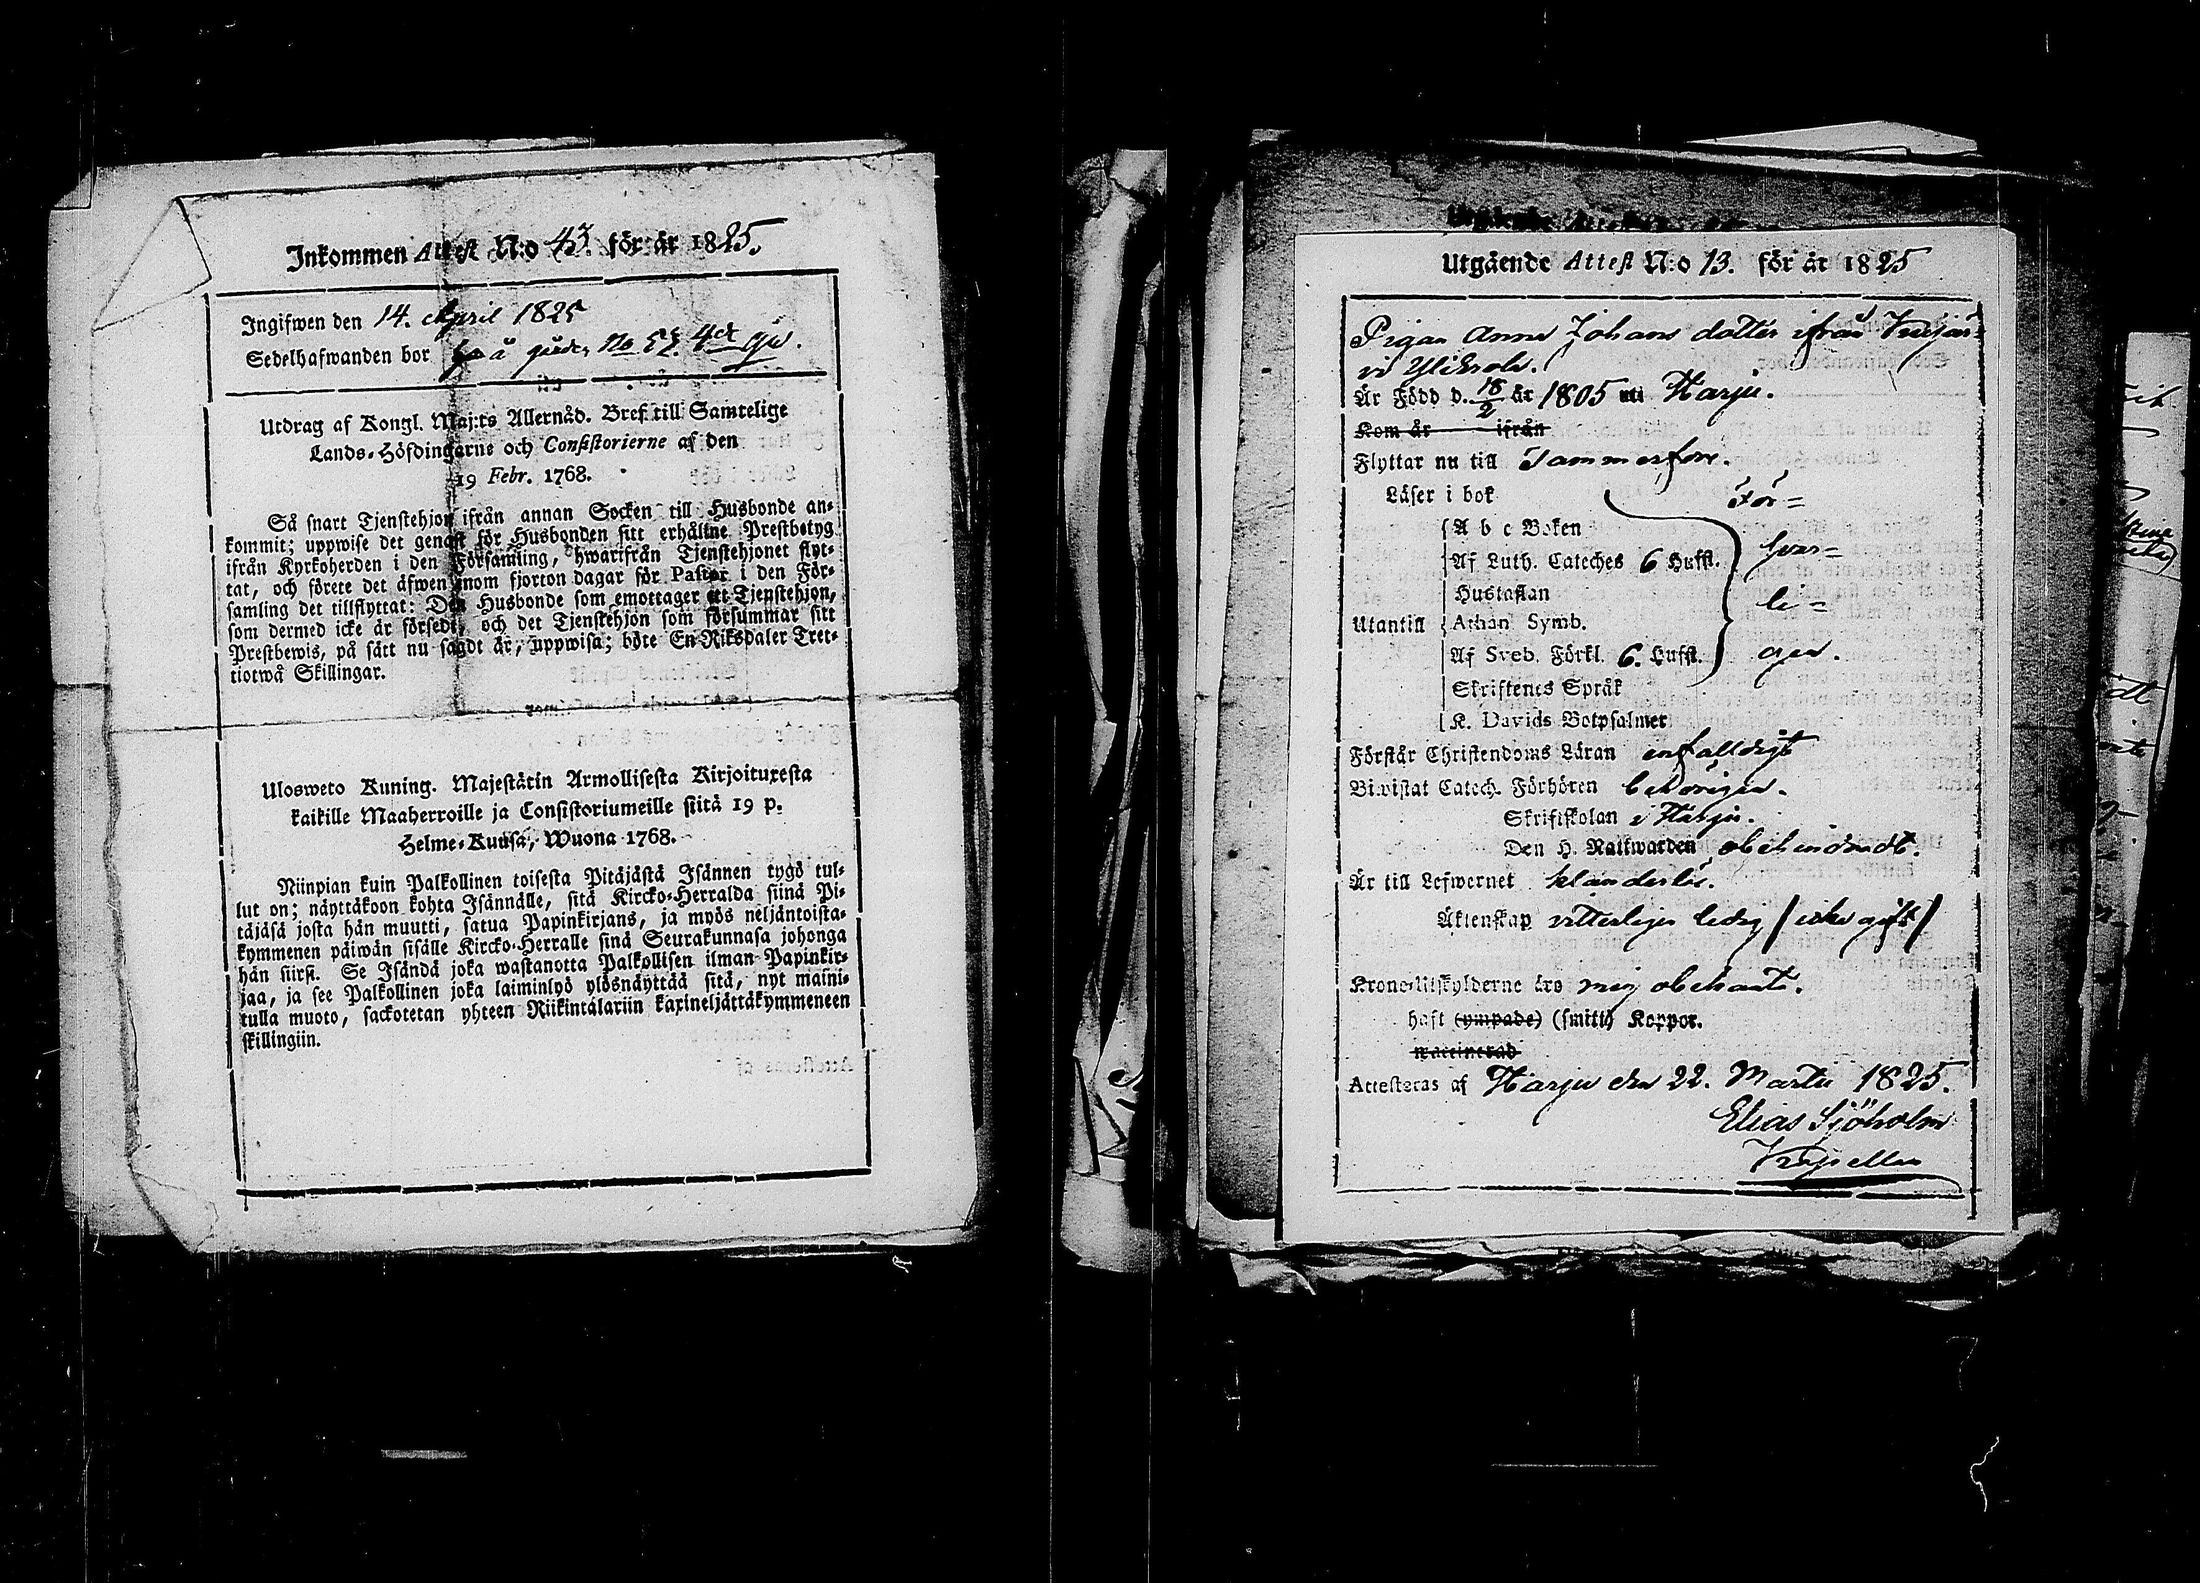 Inkommen Attest N:o 43. för år 1825.
Ingifwen den 14. April 1825
Sedelhafwanden bor på gården No 57. 4de
Utdrag af Kongl. Maj:ts Allernåd. Bref till Samtelige
Lands-Höfdingarne och Consistorierne af den
19 Febr. 1768.
Så snart Tjenstehjon ifrån annan Socken till Husbonde an-
kommit; uppwise det genast för Husbonden sitt erhållne Prestbetyg
ifrån Kyrkoherden i den Församling, hwarifrån Tjenstehjonet flyt-
tat, och förete det äfwen inom fjorton dagar för Pastor i den För-
samling det tillflyttat: Den Husbonde som emottager ett Tjenstehjon,
som dermed icke är försedt, och det Tjenstehjon som försummar sitt
Prestbewis, på sätt nu sagdt är, uppwisa; böte En Riksdaler Tret-
tiotwå Skillingar.
Ulosweto Kuning. Majestätin Armollisesta Kirjoituxesta
kaikille Maaherroille ja Consistoriumeille siitä 19 p.
Helme-Kuusa, Wuona 1768.
Niinpian kuin Palkollinen toisesta Pitäjästä Isännen tygö tul-
lut on; näyttäkoon kohta Isännälle, sitä Kircko-Herralda siinä Pi-
täjäsä josta hän muutti, satua Papinkirjans, ja myös neljäntoista-
kymmenen päiwän sisälle Kircko-Herralle sinä Seurakunnasa johonga
hän siirsi. Se Isändä joka wastanotta Palkollisen ilman Papinkir-
jaa, ja see Palkollinen joka laiminlyö ylösnäyttää sitä, nyt maini-
tulla muoto, sackotetan yhteen Riikintalariin kaxineljättäkymmeneen
skillingiin.
Utgående Attest N:o 13. för år 1825
Pigan Anna Johans dotter ifrån Kuijär-
vi Ylikola.
Är Född d. 18/2 år 1805 uti Harju.
Kom år ifrån
Flyttar nu till Tammerfors.
Läser i bok För=
A b c Boken
Af Luth. Cateches 6 Hufst. svar=
Hustaflan
Utantill Athan. Symb. li=
Af Sveb. Förkl. 6. Hufst. gen.
Skriftenes Språk
K. Davids Botpsalmer
Förstår Christendoms Läran enfalldigt
Biwistat Catech. Förhören behörigen.
Skriftskolan i Harju.
Den H. Nattwarden obehindradt.
Är till Lefwernet klanderlös.
Äktenskap vitterligen ledig / icke gift /
Krono-Utskylderne äro mig obekante.
haft (ympade) (smitt) Koppor.
waccinerad
Attesteras af Harju den 22. Martii 1825.
Elias Sjöholm
Kapellan